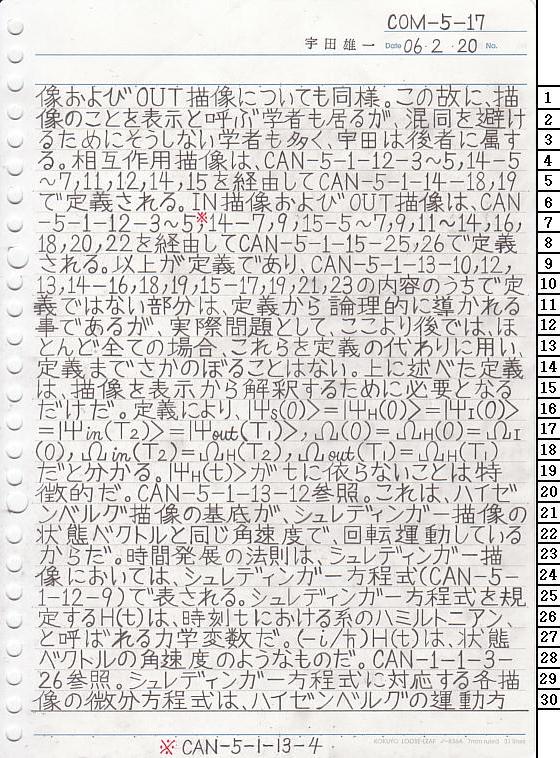 COM-5-17
宇田雄一 Date 06・2・20 No.
像およびOUT描像についても同様。この故に、描 1
像のことを表示と呼ぶ学者も居るが、混同を避け 2
るためにそうしない学者も多く、宇田は後者に属す 3
る。相互作用描像は、CAN-5-1-12-3~5,14-5 4
~7,11,12,14,15を経由してCAN-5-1-14-18,19 5
で定義される。IN描像およびOUT描像は、CAN 6
-5-1-12-3~5※14-7,9,15-5~7,9,11~14,16, 7
18,20,22を経由してCAN-5-1-15-25,26で定義 8
される。以上が定義であり、CAN-5-1-13-10,12, 9
13,14-16,18,19,15-17,19,21,23の内容のうちで定 10
義ではない部分は、定義から論理的に導かれる 11
事であるが、実際問題として、ここより後では、ほ 12
とんど全ての場合、これらを定義の代わりに用い、 13
定義までさかのぼることはない。上に述べた定義 14
は、描像を表示から解釈するために必要となる 15
だけだ。定義により、|Ψs(0)>=|ΨH(0)>=|ΨI(0)> 16
=|Ψin(T2)>=|Ψout(T1)>,Ω(0)=ΩH(0)=ΩI 17
(0),Ωin(T2)=ΩH(T2),Ωout(T1)=ΩH(T1) 18
だと分かる。|ΨH(t)>がtに依らないことは特 19
徴的だ。CAN-5-1-13-12参照。これは、ハイゼ 20
ンベルグ描像の基底が、シュレディンガー描像の 21
状態ベクトルと同じ角速度で、回転運動している 22
からだ。時間発展の法則は、シュレディンガー描 23
像においては、シュレディンガー方程式(CAN-5- 24
1-12-9)で表される。シュレディンガー方程式を規 25
定するH(t)は、時刻tにおける系のハミルトニアン、 26
と呼ばれる力学変数だ。(-i/ħ)H(t)は、状態 27
ベクトルの角速度のようなものだ。CAN-1-1-3- 28
26参照。シュレディンガー方程式に対応する各描 29
像の微分方程式は、ハイゼンベルグの運動方 30
※ CAN-5-1-13-4
KOKUYO LOOSE-LEAF ノ-836A 7mm ruled 31 lines